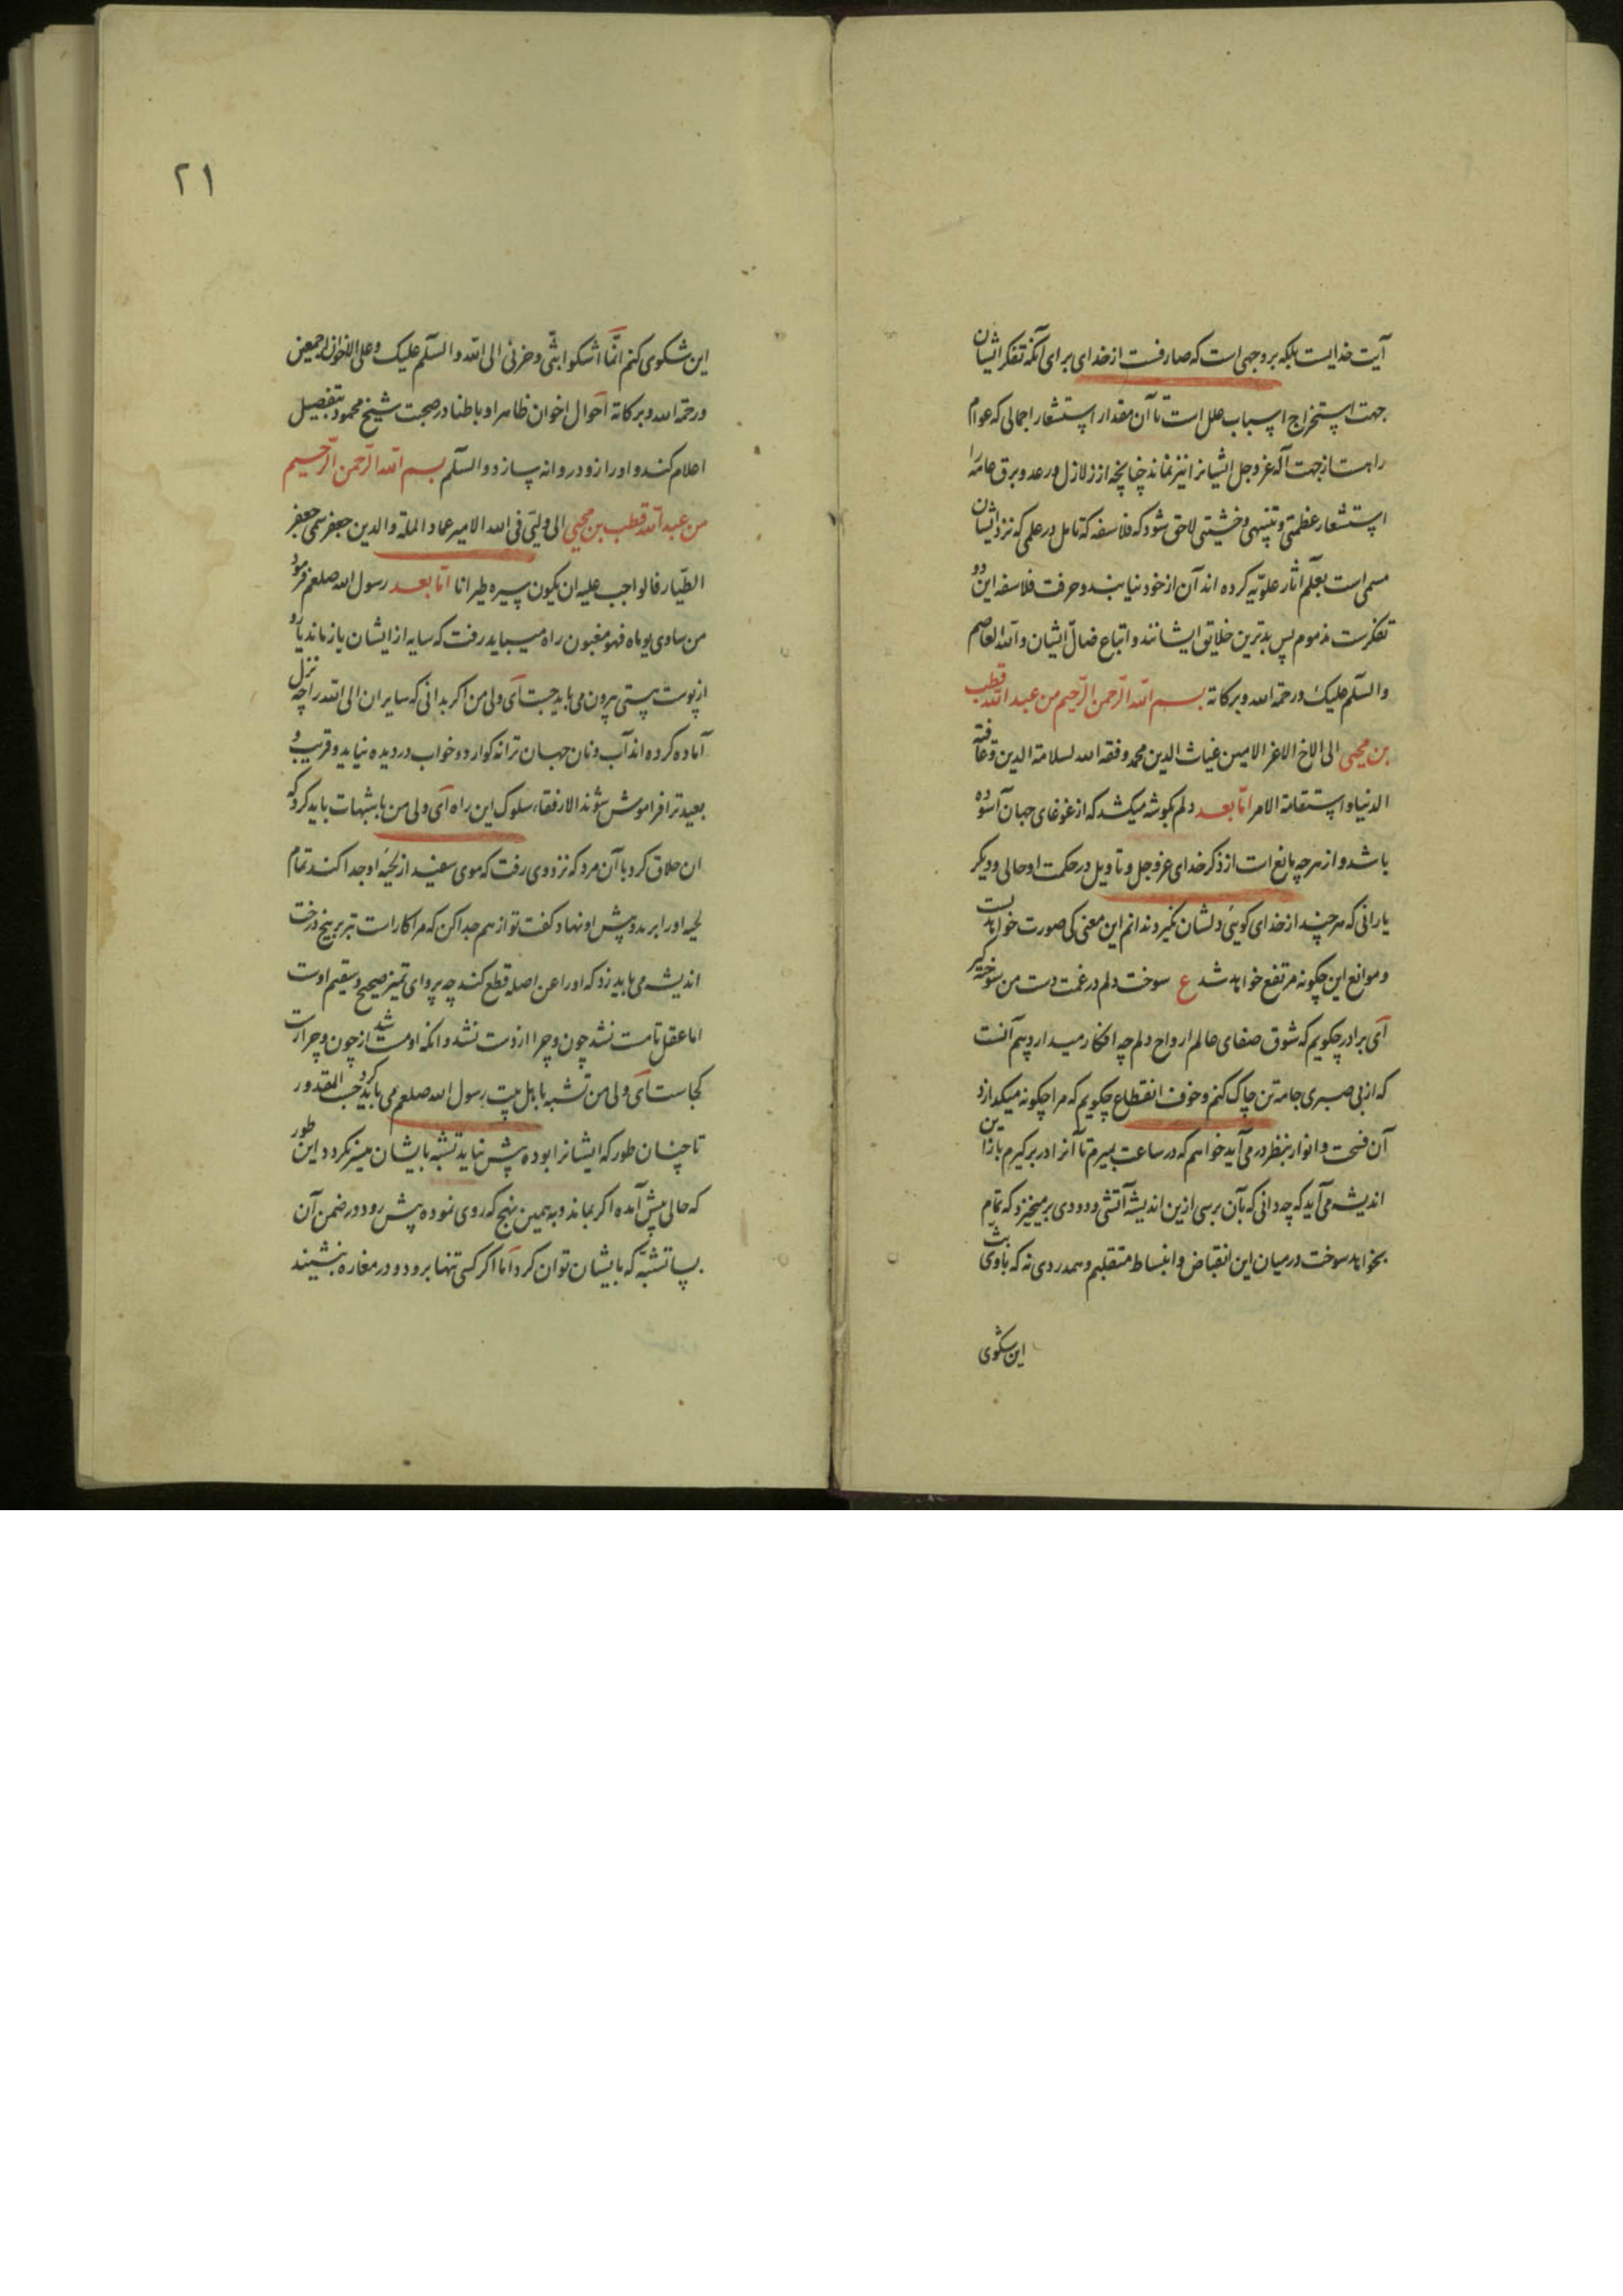 آیت خدایست بلکه بروجهی است که صارفست از خدای برای آنکه تفکر ایشان
جهت استخراج اسباب علل است تا آن مقدار استشعار اجمالی که عوام
راست از جهت آله عز و جل ایشانرا نیز نماند چنانچه از زلازل و رعد و برق عامه را
استشعار عظمتی و تنبهی و خشیتی لاحق شود که فلاسفه که تامل در علمی که نزد ایشان
مسمی است بعلم آثار علویه کرده اند آن از خود نیابند و حرفت فلاسفه این دو
تفکرست مذموم پس بدترین خلایق ایشانند و اتباع ضال ایشان والله العاصم
والسلم علیک ورحمة الله وبرکاته بسم الله الرحمن الرحیم من عبد الله قطب
بن محیی الی الاخ الاعز الامین غیاث الدین محمد وفقه الله لسلامة الدین وعافیة
الدنیا واستقامة الامر اما بعد دلم بگوشه میکشد که از غوغای جهان آسوده
باشد و از هرچه مانع است از ذکر خدای عز وجل و تاویل در حکمت او خالی و دیگر
یارانی که هر چند از خدای گوئی دلشان نگیرد ندانم این معنی کی صورت خواهد بست
و موانع این چگونه مرتفع خواهد شد ع سوخت دلم در غمت دست من سوخته گیر
ای برادر چگویم که شوق صفای عالم ارواح دلم چه افکار میدارد بیم آنست
که از بی صبری جامه تن چاک کنم و خوف انقطاع چگویم که مرا چگونه میگدازد
آن فسحت و انوار بنظر در می آید خواهم که در ساعت بمیرم تا آنرا در برگیرم باز این
اندیشه می آید که چه دانی که بآن برسی ازین اندیشه آتشی و دودی بر میخیزد که تمام
بخواهد سوخت در میان این انقباض و انبساط متقلبم و همدردی نه که باوی بث
این شکوی
۲۱
این شکوی کنم انما اشکوا بثی وحزنی الی الله والسلم علیک وعلی الاخوان اجمعین
ورحمة الله وبرکاته احوال اخوان ظاهرا و باطنا در صحبت شیخ محمود بتفصیل
اعلام کند و او را زود روانه سازد والسلم بسم الله الرحمن الرحیم
من عبد الله قطب بن محیی الی ولیی فی الله الامیر عماد الملة والدین جعفر سمی جعفر
الطیار فالواجب علیه ان یکون سیره طیرانا اما بعد رسول الله صلعم فرمود
من ساوی یوماه فهو مغبون راه میباید رفت که سایه از ایشان باز ماند یا رو
از پوست پستی بیرون می باید جست ای ولی من اگر بدانی که سایران الی الله را چه نزل
آماده کرده اند آب و نان جهان ترا نگوارد و خواب در دیده نیاید و قریب و
بعید ترا فراموش شوند الا رفقاء سلوک این راه ای ولی من با شبهات باید کرد که
ان حلاق کرد با آن مرد که نزد وی رفت که موی سفید از لحیه او جدا کند تمام
لحیه او را برید و پیش او نهاد و گفت تو از هم جدا کن که مرا کارست تبر بر بیخ درخت
اندیشه می باید زد که او را عن اصله قطع کند چه پروای تمیز صحیح و سقیم اوست
اما عقل تا مست نشد چون و چرا از دست نشد و آنکه او مست شد از چون و چرا رست
کجاست ای ولی من تشبه باهل بیت رسول الله صلعم می باید کرد حسب المقدور
تا چنان طور که ایشانرا بوده پیش نیاید تشبه بایشان میسر نگردد این طور
که حالی پیش آمده اگر بماند و بهمین نهج که روی نموده پیش رود در ضمن آن
بسا تشبه که بایشان توان کرد اما اگر کسی تنها برود و در مغاره بنشیند